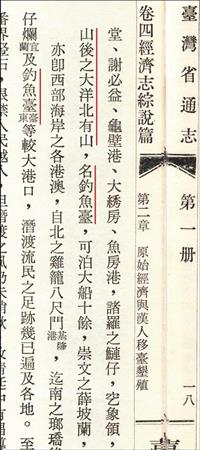 臺灣省通志 第一册 一八
卷四經濟志綜說篇 第二章 原始經濟與漢人移臺墾殖
堂、謝必益、龜壁港、大綉房、魚房港,諸羅之鰱仔,穵象領,
山後之大洋北有山,名釣魚臺,可泊大船十餘,崇文之薛坡蘭,
亦卽西部海岸之各港澳,自北之雞籠八尺門基隆港,迄南之瑯
仔爛宜蘭及釣魚臺臺東等較大港口,潛渡流民之足跡幾已遍及各地。至